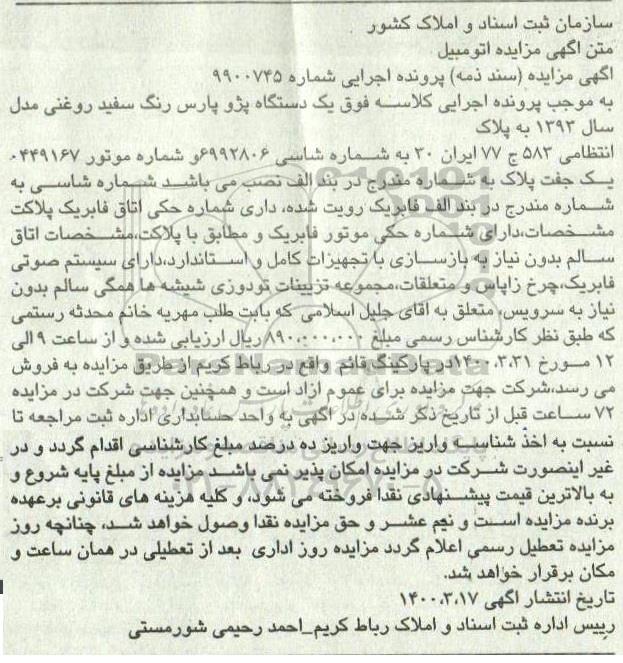 سازمان ثبت اسناد و املاک کشور
متن اگهی مزایده اتومبیل
اگهی مزایده (سند ذمه) پرونده اجرایی شماره ۹۹۰۰۷۴۵
به موجب پرونده اجرایی کلاسه فوق یک دستگاه پژو پارس رنگ سفید روغنی مدل
سال ۱۳۹۳ به پلاک
انتظامی ۵۸۳ ج ۷۷ ایران ۳۰ به شماره شاسی ۶۹۹۲۸۰۶و شماره موتور ۰۴۴۹۱۶۷
یک جفت پلاک به شماره مندرج در بند الف نصب می باشد شماره شاسی به
شماره مندرج در بند الف فابریک رویت شده، داری شماره حکی اتاق فابریک پلاکت
مشخصات،دارای شماره حکی موتور فابریک و مطابق با پلاکت،مشخصات اتاق
سالم بدون نیاز به بازسازی با تجهیزات کامل و استاندارد،دارای سیستم صوتی
فابریک،چرخ زاپاس و متعلقات،مجموعه تزیینات تودوزی شیشه ها همگی سالم بدون
نیاز به سرویس، متعلق به اقای جلیل اسلامی که بابت طلب مهریه خانم محدثه رستمی
که طبق نظر کارشناس رسمی مبلغ ۸۹۰،۰۰۰،۰۰۰ ریال ارزیابی شده و از ساعت ۹ الی
۱۲ مورخ ۱۴۰۰،۳،۳۱در پارکینگ قائم واقع در رباط کریم از طریق مزایده به فروش
می رسد،شرکت جهت مزایده برای عموم ازاد است و همچنین جهت شرکت در مزایده
۷۲ ساعت قبل از تاریخ ذکر شده در اگهی به واحد حسابداری اداره ثبت مراجعه تا
نسبت به اخذ شناسه واریز جهت واریز ده درصد مبلغ کارشناسی اقدام گردد و در
غیر اینصورت شرکت در مزایده امکان پذیر نمی باشد مزایده از مبلغ پایه شروع و
به بالاترین قیمت پیشنهادی نقدا فروخته می شود، و کلیه هزینه های قانونی برعهده
برنده مزایده است و نیم عشر و حق مزایده نقدا وصول خواهد شد، چنانچه روز
مزایده تعطیل رسمی اعلام گردد مزایده روز اداری بعد از تعطیلی در همان ساعت و
مکان برقرار خواهد شد.
تاریخ انتشار اگهی ۱۴۰۰،۳،۱۷
رییس اداره ثبت اسناد و املاک رباط کریم_احمد رحیمی شورمستی